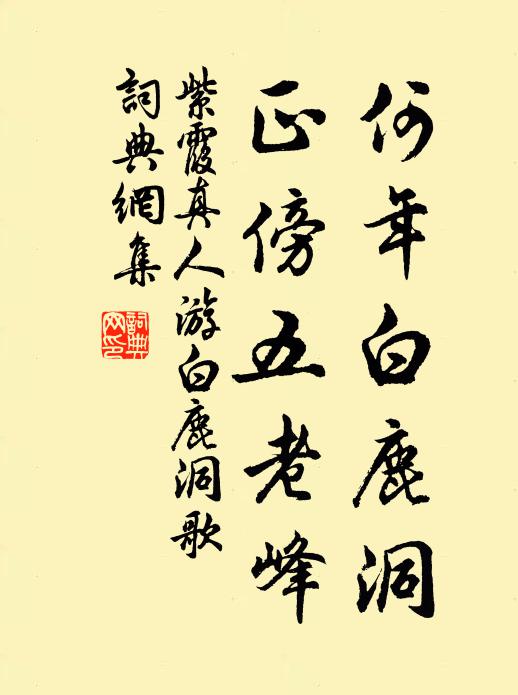 何年白鹿洞
正傍五老峰
紫霞真人游白鹿洞歌
詞典網集
詞典
网印